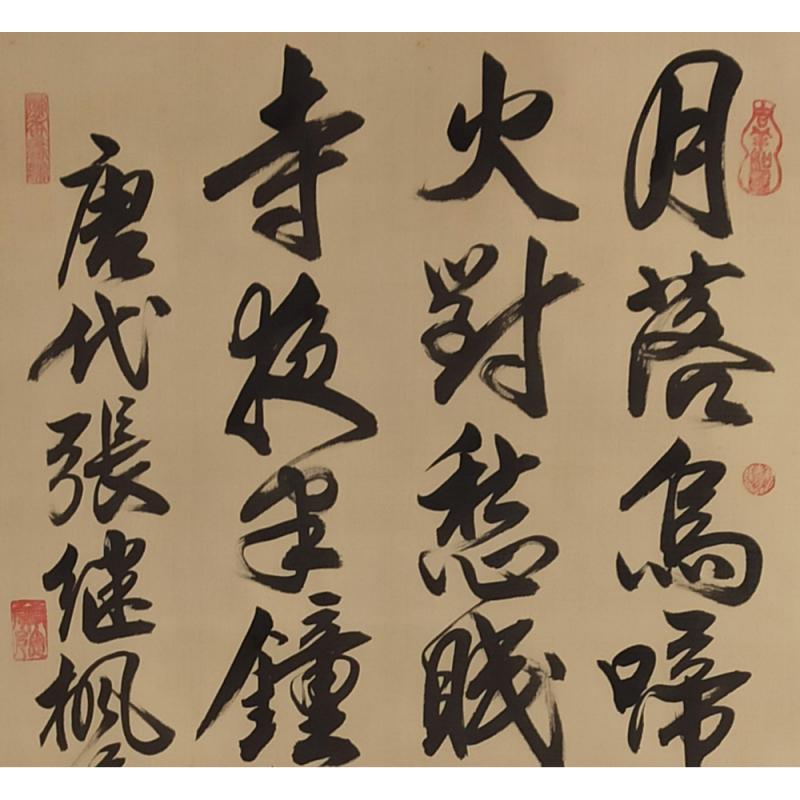 月落烏啼
火對愁眠
寺夜半鐘
唐代張继枫